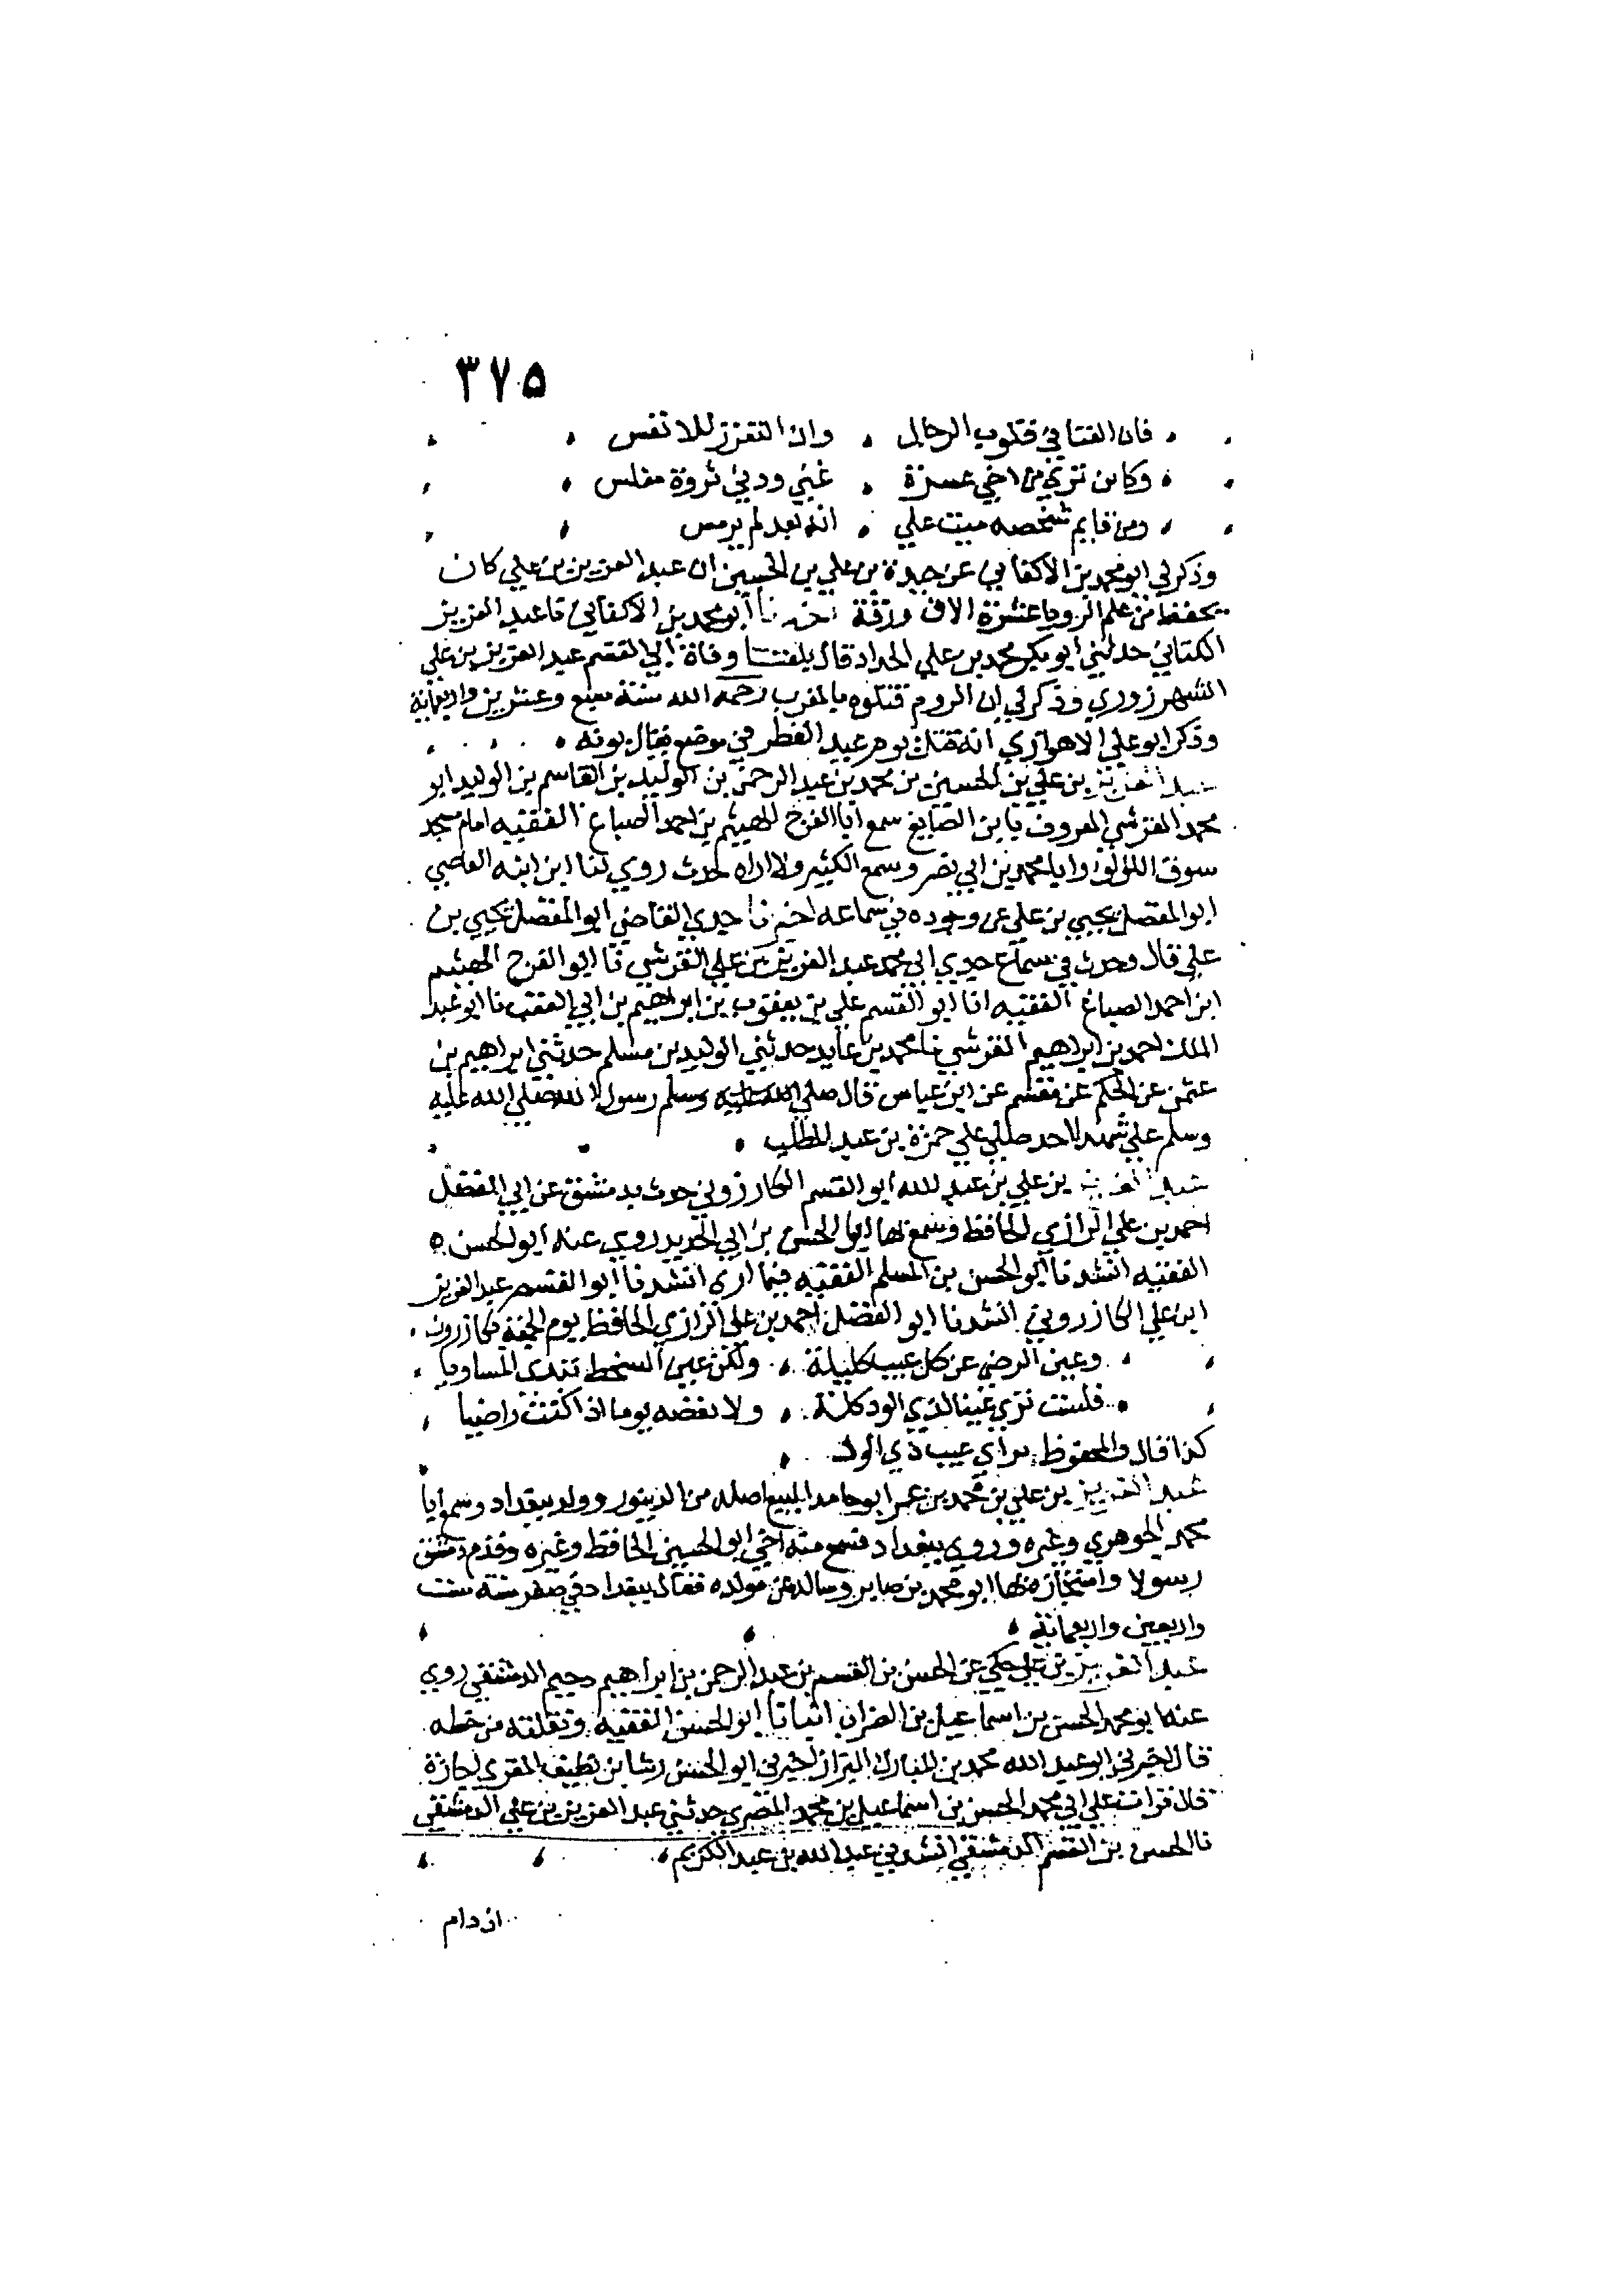 ٣٧٥
فان الغنا في قلوب الرجال وان التعزز للانفس
وكاين تري من اخي عسرة غني وذي ثروة مفلس
ومن قايم شخصه ميت علي انه بعد لم يرمس
وذكر لي ابو محمد بن الاكفاني عن حيدرة بن علي بن الحسين ان عبد العزيز بن علي كان
يحفظ من علم الرويا عشرة الاف ورقة اخبرنا ابو محمد بن الاكفاني نا عبد العزيز
الكتاني حدثني ابو بكر محمد بن علي الحداد قال بلغتنا وفاة ابي القسم عبد العزيز بن علي
الشهرزوري وذكر لي ان الروم قتلوه بالمغرب رحمه الله سنة سبع وعشرين واربعماية
وذكر ابو علي الاهوازي انه قتل يوم عيد الفطر في موضع يقال بونه
عبد العزيز بن علي بن الحسين بن محمد بن عبد الرحمن بن الوليد بن القاسم بن الوليد ابو
محمد القرشي المعروف بابن الصايغ سمع ابا الفرج الهيثم بن احمد الصباغ الفقيه امام مسجد
سوق اللولو وابا محمد بن ابي نصر وسمع الكثير ولا اراه حدث روي لنا ابن ابنه القاضي
ابو المفضل يحيي بن علي عن وجوده في سماعه اخبرنا جدي القاضي ابو المفضل يحيي بن
علي قال وجدت في سماع جدي ابي محمد عبد العزيز بن علي القرشي نا ابو الفرج الهيثم
ابن احمد الصباغ الفقيه انا ابو القسم علي بن يعقوب بن ابراهيم بن ابي العقب نا ابو عبد
الملك احمد بن ابراهيم القرشي نا محمد بن عايد حدثني الوليد بن مسلم حدثني ابراهيم بن
عثمن عن الحكم عن مقسم عن ابن عباس قال صلي الله عليه وسلم رسول الله صلي الله عليه
وسلم علي شهدا احد صلي علي حمزة بن عبد المطلب
عبد العزيز بن علي بن عبد الله ابو القسم الكازروني حدث بدمشق عن ابي الفضل
احمد بن علي الرازي الحافظ وسمع بها ابا الحسن بن ابي الحديد روي عنه ابو الحسن
الفقيه انشدنا ابو الحسن بن المسلم الفقيه فيما اري انشدنا ابو القسم عبد العزيز
ابن علي الكازروني انشدنا ابو الفضل احمد بن علي الرازي الحافظ يوم الجمعة بكازرون
وعين الرضي عن كل عيب كليلة ولكن عين السخط تبدي المساويا
فلست تري عيبا لذي الود كله ولا بعضه يوما اذا كنت راضيا
كذا قال والمحفوظ براي عيب ذي الود
عبد العزيز بن علي بن محمد بن عمر ابو حامد البيع اصله من الدينور وولد ببغداد وسمع ابا
محمد الجوهري وغيره وروي ببغداد فسمع منه اخي ابو الحسين الحافظ وغيره وقدم دمشق
رسولا واستجازه بها ابو محمد بن صابر وساله عن مولده فقال ببغداد في صفر سنة ست
واربعين واربعماية
عبد العزيز بن علي حكي عن الحسن بن القسم بن عبد الرحمن بن ابراهيم دحيم الدمشقي روي
عنه ابو محمد الحسن بن اسماعيل بن الضراب انبانا ابو الحسن الفقيه ونقلته من خطه
قال اخبرني ابو عبد الله محمد بن المبارك البزاز اخبرني ابو الحسن رشا بن نظيف المقري اجازة
قال قرات علي ابي محمد الحسن بن اسماعيل بن محمد المصري حدثني عبد العزيز بن علي الدمشقي
نا الحسن بن القسم الدمشقي انشدني عبد الله بن عبد الكريم
ان دام